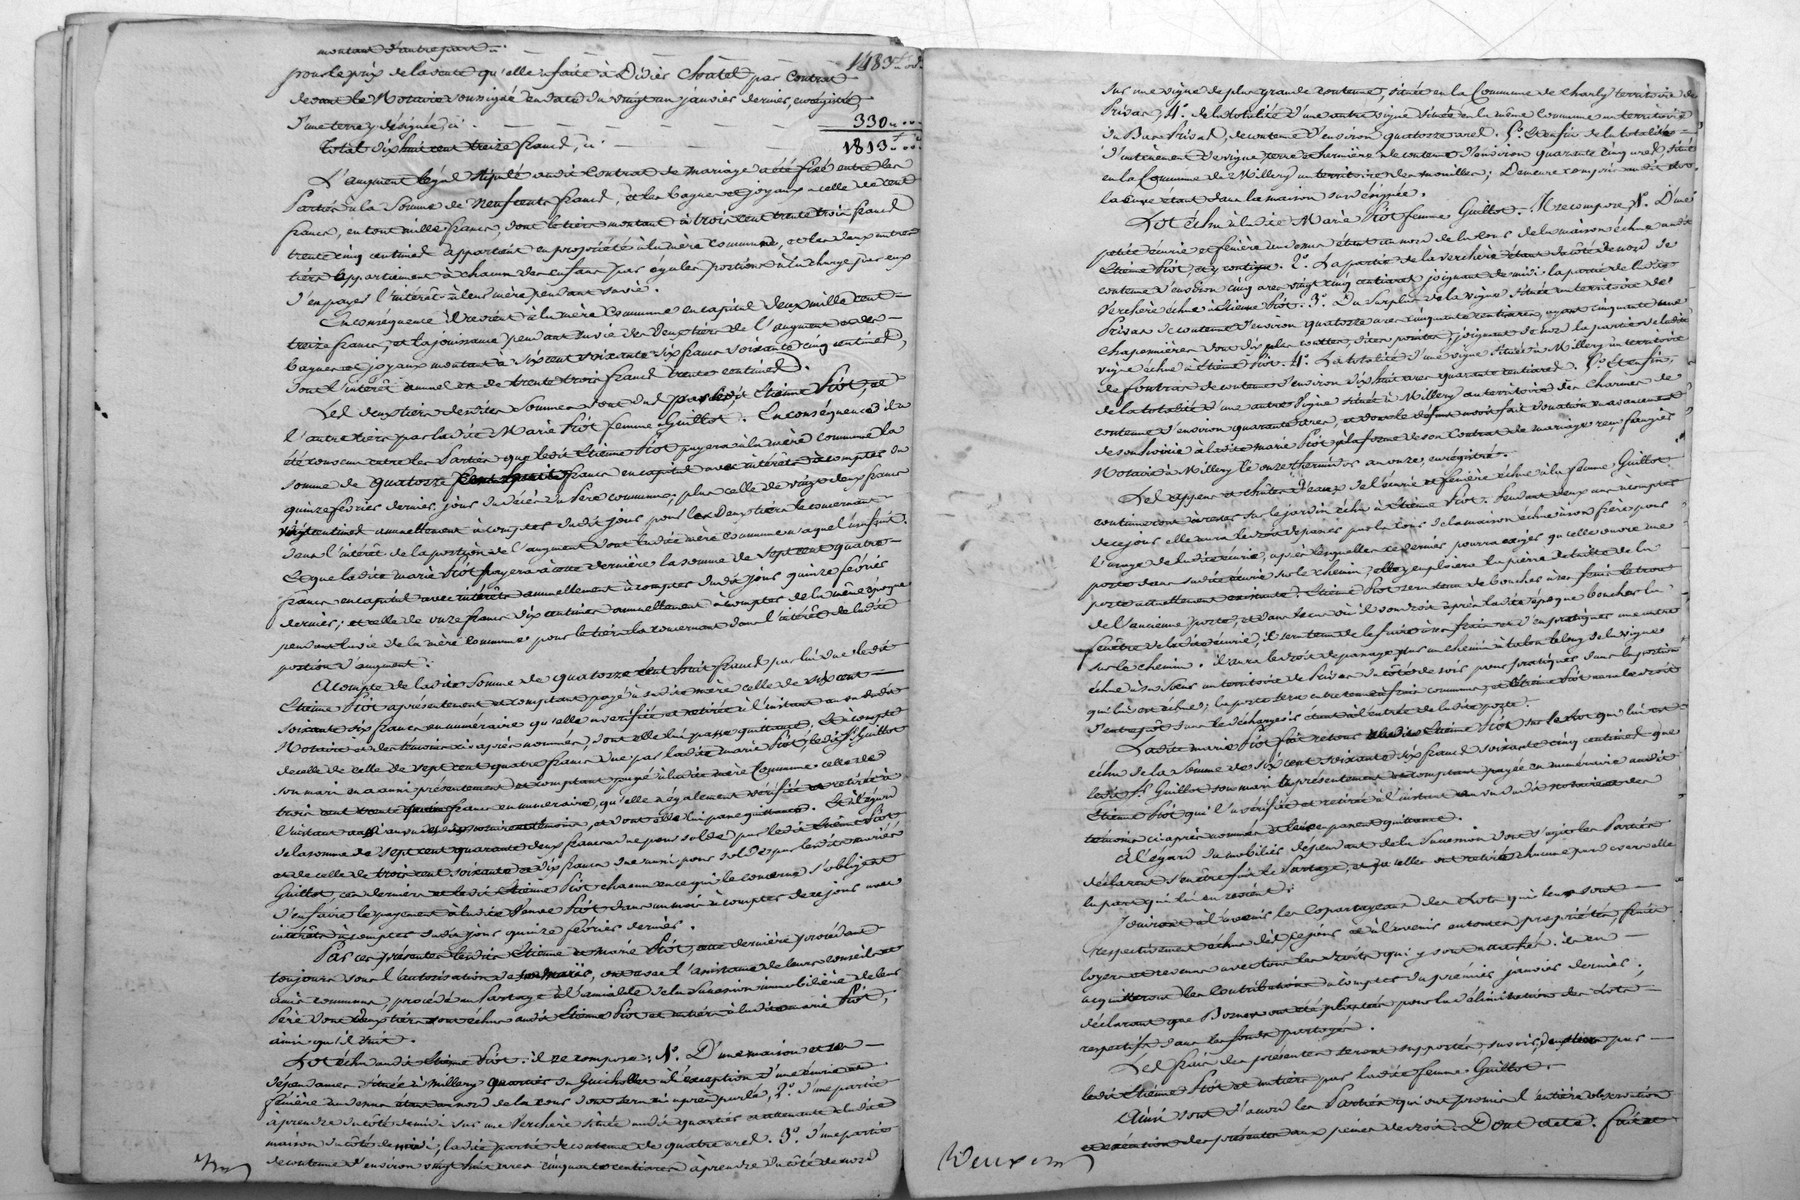 montant d'autre part — 1483.
pour le prix de la vente qu'elle a faite à Didier Chatel par contrat
devant le Notaire soussigné en date du vingt un janvier dernier, enrégistré,
d'une terre y désignée, ci 330
Total dix huit cent treize francs, ci 1813
L'augment légal stipulé audit Contrat de mariage a été fixé entre les
Parties à la somme de neuf cents francs, et les bagues et joyaux à celle de cent
francs, en tout mille francs, dont le tiers montant à trois cent trente trois francs
trente cinq centimes appartient en propriété à la mère commune, et les deux autres
tiers appartiennent à chacun des enfans par égales portions à la charge par eux
d'en payer l'intérêt à leur mère pendant sa vie.
En conséquence il revient à la mère commune en capital deux mille cent
treize francs, et la jouissance pendant sa vie des deux tiers de l'augment et des
bagues et joyaux montant à six cent soixante six francs soixante cinq centimes,
dont l'intérêt annuel est de trente trois francs trente centimes.
Les deux tiers desdites sommes sont dus par ledit Etiène Piot, et
l'autre tiers par ladite Marie Piot femme Guillot. En conséquence il a
été convenu entre les Parties que ledit Etiène Piot payera à la mère commune la
somme de quatorze cent huit francs en capital avec intérêts à compter du
quinze février dernier, jour du décès du Père commun, plus celle de vingt deux francs
vingt centimes annuellement à compter dudit jour pour les deux tiers le concernant
dans l'intérêt de la portion de l'augment dont ladite mère commune a que l'usufruit.
Et que ladite marie Piot payera à cette dernière la somme de sept cent quatre
francs en capital avec intérêts annuellement à compter dudit jour quinze février
dernier; et celle de onze francs dix centimes annuellement à compter de la même époque
pendant la vie de la mère commune pour le tiers la concernant dans l'intérêt de ladite
portion d'augment.
A compte de ladite somme de quatorze cent huit francs par lui due ledit
Etiène Piot a présentement et comptant payé à sadite mère celle de six cent
soixante six francs en numéraire qu'elle a vérifiée et retirée à l'instant au vu dudit
Notaire et des témoins ci après nommés, dont elle lui passe quittance, Et à compte
de celle de sept cent quatre francs due par ladite marie Piot, ledit Sr Guillot
son mari en a aussi présentement et comptant payé à ladite mère Commune celle de
trois cent trente francs en numéraire, qu'elle a également vérifiée et retirée à
l'instant aussi au vu desdits notaire et témoins, et dont elle lui passe quittance. Et à l'égard
de la somme de sept cent quarante deux francs due pour solde par ledit Etiène Piot
et de celle de trois cent soixante dix francs due aussi pour solde par lesdits mariés
Guillot, ces derniers et ledit Etiène Piot chacun en ce qui le concerne s'obligent
d'en faire le payement à ladite Veuve Piot dans un mois à compter de ce jour avec
intérêts à compter dudit jour quinze février dernier.
Par ces présentes lesdits Etiène et Marie Piot, cette dernière procédant
toujours sous l'autorisation de son mari, ont avec l'assistance de leurs conseils et
amis communs, procédé au Partage à l'amiable de la Succession immobilière de leur
Père dont deux tiers sont échus audit Etiène Piot et un tiers à ladite marie Piot,
ainsi qu'il suit.
Lot échu audit Etiène Piot. il se compose, 1o. D'une maison et ses
dépendances située à Millery quartier du Guicholle à l'exception d'une écurie et
fénière au dessus étant au nord de la cour dont sera ci après parlé, 2o. d'une partie
à prendre du côté de midi sur une Verchère située audit quartier et attenante à ladite
maison du côté de midi, ladite partie de contenue de quatre ares. 3o. d'une partie
de contenue d'environ vingt huit ares cinquante centiares à prendre du côté de nord
sur une vigne de plus grande contenue, située en la Commune de Charly territoire de
Prisan, 4o. de la totalité d'une autre vigne située en la même commune au territoire
du Bas Prisan, de contenue d'environ quatorze ares. 5o. Et enfin de la totalité
d'un ténement de vigne, terre et hermiere de contenue d'environ quarante cinq ares, situé
en la Commune de Millery au territoire des mouilles; Demeure compris audit lot
la cuve étant dans la maison sus désignée.
Lot échu à ladite Marie Piot femme Guillot. Il se compose, 1o. D'une
petite écurie et fénière au dessus étant au nord de la cour de la maison échue audit
Etiène Piot, et y contigu. 2o. La partie de la verchère étant du côté de nord de
contenue d'environ cinq ares vingt cinq centiares, joignant de midi la partie de ladite
Verchère échue à Etiène Piot. 3o. Du surplus de la vigne située au territoire de
Prisan de contenue d'environ quatorze ares cinquante centiares, ayant cinquante une
chaponnières joignant de nord la partie de ladite
vigne échue à Etiène Piot. 4o. La totalité d'une vigne située à Millery au territoire
de fontrat de contenue d'environ dix huit ares quarante centiares. 5o. Et enfin,
de la totalité d'une autre Vigne située à Millery au territoire des Charmes de
contenue d'environ quarante ares, et dont le défunt avoit fait donation en avancement
de son hoirie à ladite marie Piot à la forme de son Contrat de mariage reçu françois
Notaire à Millery le onze thermidor an onze, enregistré.
Les appens et chûtes d'eaux de l'écurie et fénière échue à la femme Guillot
continueront à verser sur le jardin échu à Etiène Piot. Pendant deux ans à compter
de ce jour elle aura le droit de passer par la cour de la maison échue à son frère pour
l'usage de ladite écurie, après lesquelles ce dernier pourra exiger qu'elle ouvre une
porte dans sadite écurie sur le chemin, elle y employera la pierre de taille de la
porte actuellement existante. Etiène Piot sera tenu de boucher à ses frais le trou
de l'ancienne porte, et dans le cas où il voudroit après ladite époque boucher la
fenêtre de ladite écurie, il sera tenu de le faire à ses frais et d'en pratiquer une autre
sur le chemin. il aura le droit de passage par un chemin à talon le long de la vigne
échue à sa soeur au territoire de Prisan du côté de soir pour pratiquer dans la portion
qui lui est échue; la porte sera entretenue à frais communs, et Etiène Piot aura le droit
d'entrepôt dans le déchargeoir étant à l'entrée de ladite porte.
Ladite marie Piot fait retour audit Etiène Piot sur le lot qui lui est
échu de la Somme de six cent soixante six francs soixante cinq centimes que
ledit Sr Guillot son mari a présentement et comptant payée en numéraire audit
Etiène Piot qui l'a vérifiée et retirée à l'instant au vu dudit notaire et des
témoins ci après nommés et leur en passe quittance.
A l'égard du mobilier dépendant de la Succession dont s'agit les Parties
déclarent s'en être fait le Partage, et qu'elles ont retiré chacune par devers elle
la part qui lui en revient.
Jouiront à l'avenir les Copartageans des Lots qui leur sont
respectivement échus dès ce jour et à l'avenir en toute propriété, fruits
loyers et revenus avec tous les droits qui y sont attachés. ils en
acquitteront les Contributions à compter du premier janvier dernier;
déclarant que Bornes ont été plantées pour la délimitation des Lots
respectifs dans les fonds partagés.
Les frais des présentes seront supportés, savoir, deux tiers par
ledit Etiène Piot et un tiers par ladite femme Guillot.
Ainsi sont d'accord les Parties qui ont promis l'entière observation
et exécution des présentes aux peines de droit. Dont acte. fait et